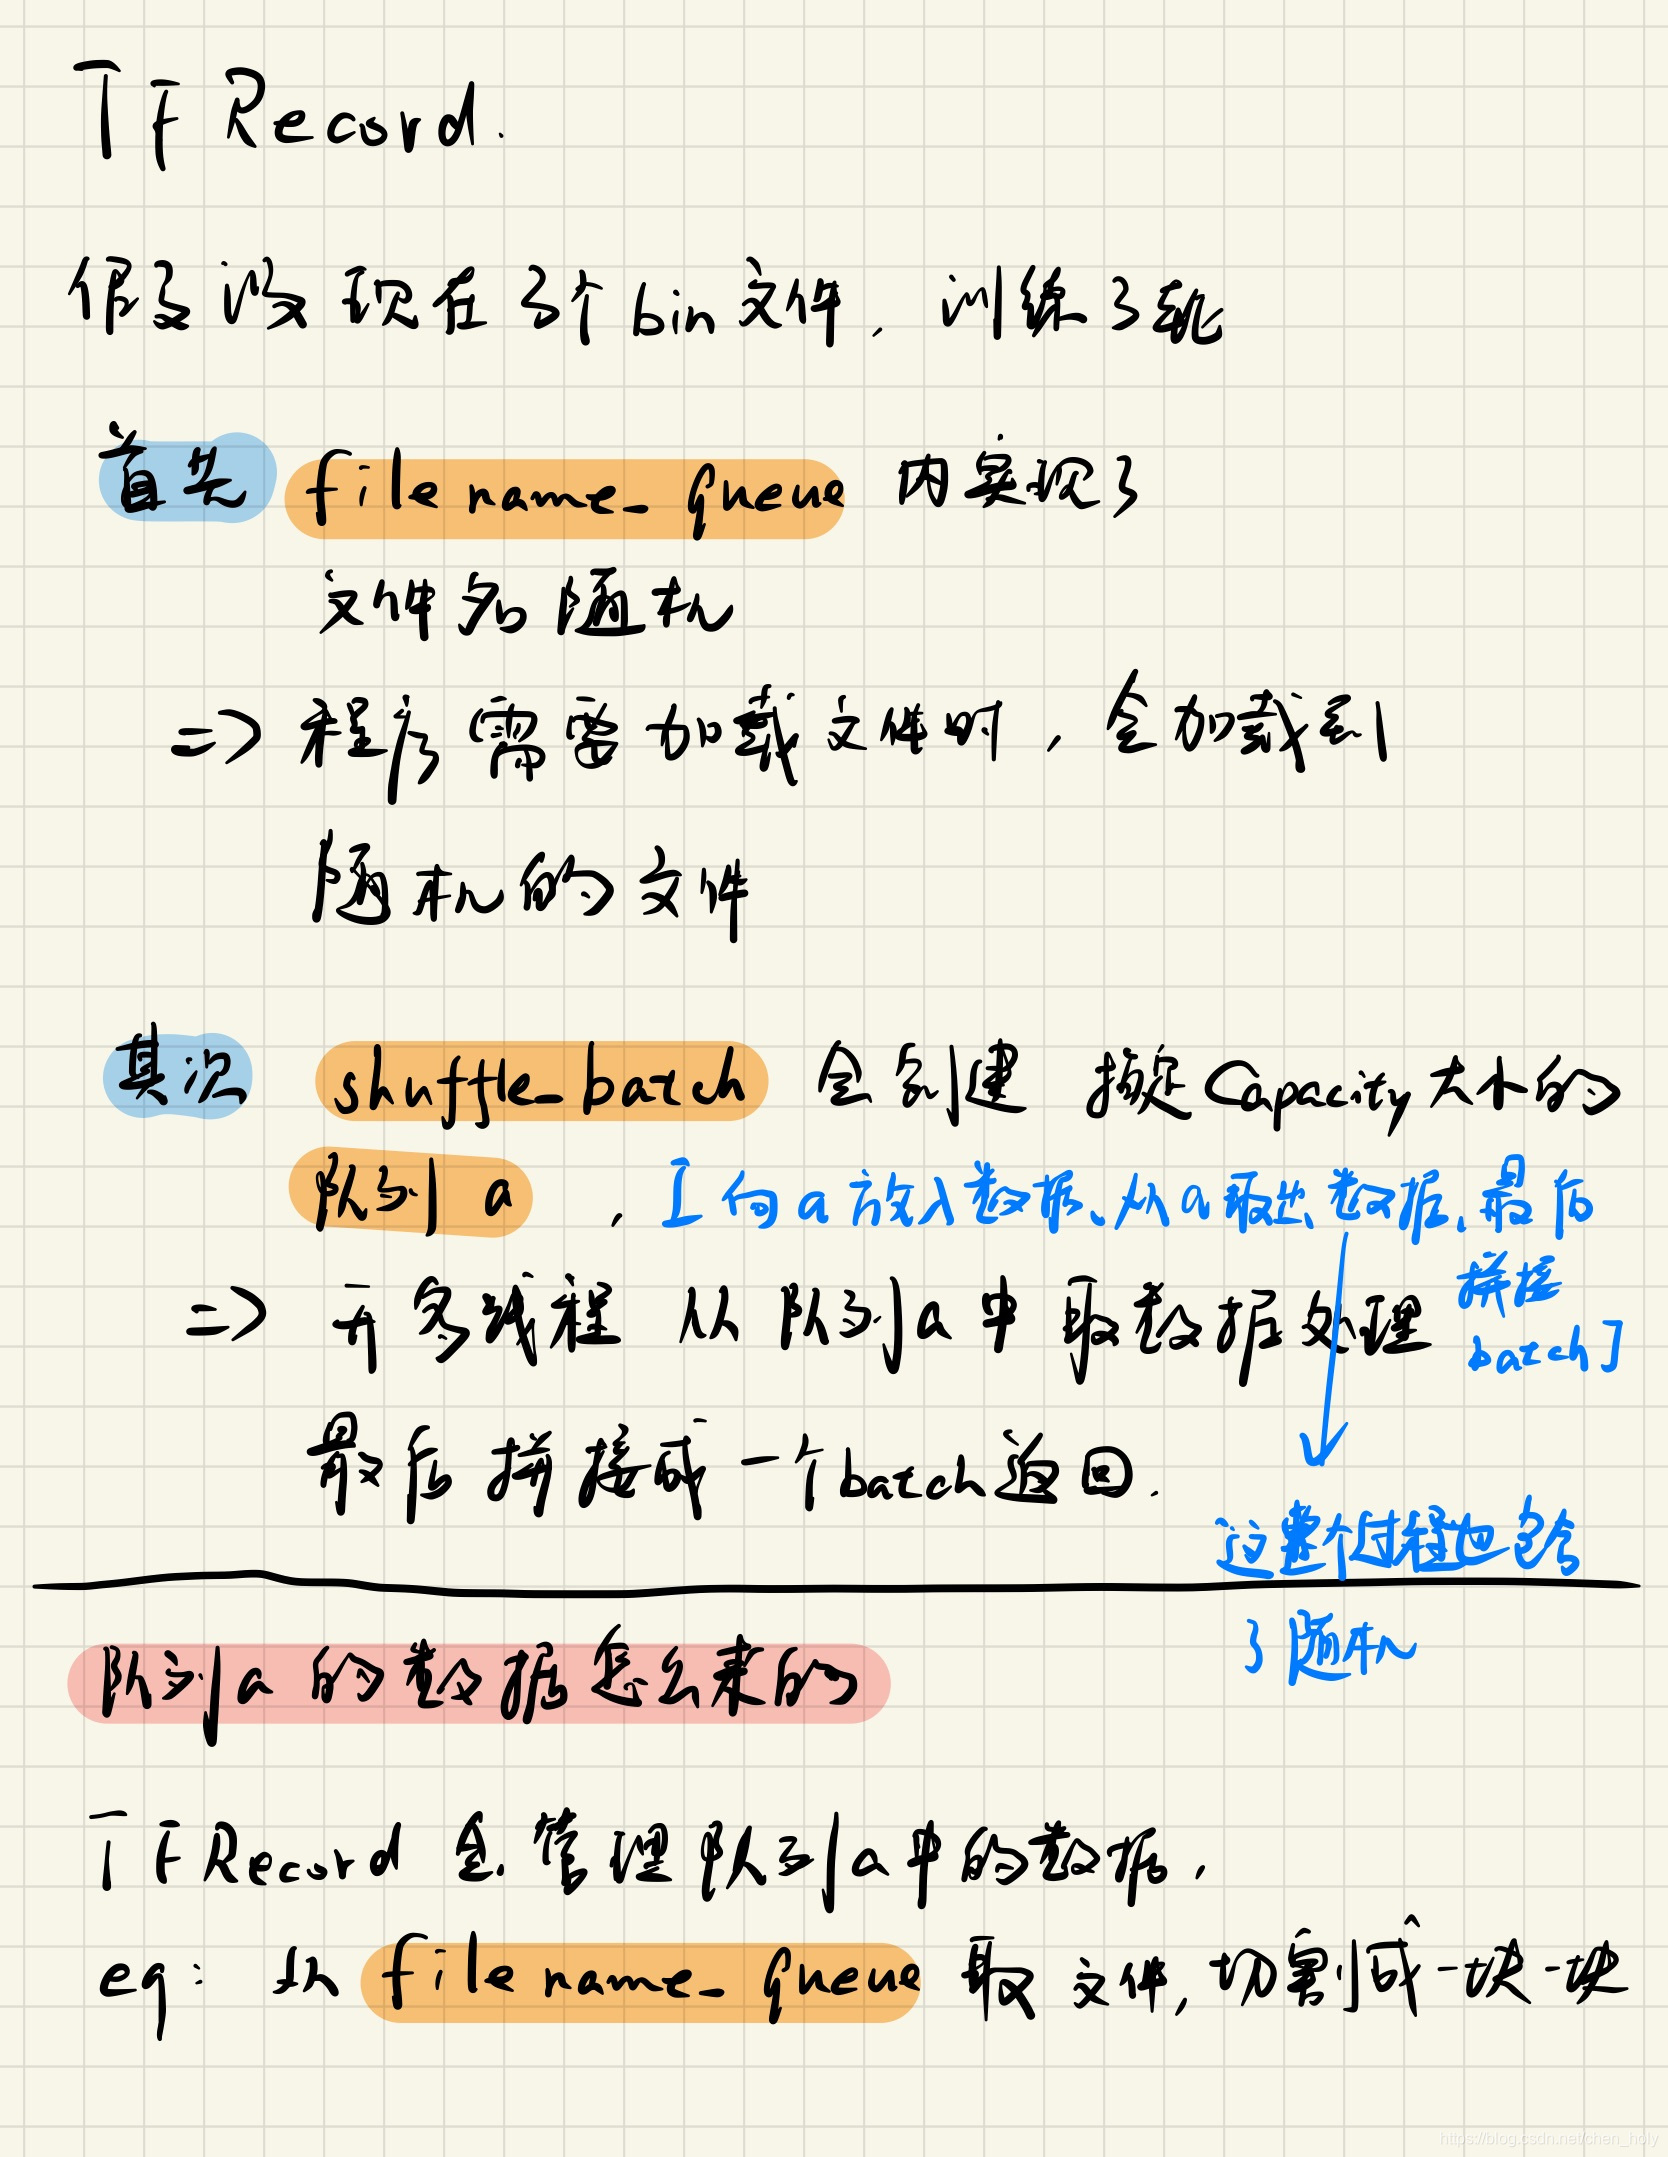 TFRecord.
假设现在3个bin文件，训练3轮
首先 filename_queue 内实现了
文件名随机
=> 程序需要加载文件时，会加载到
随机的文件
其次 shuffle_batch 会创建 指定Capacity大小的
队列a ，[向a放入数据、从a取出数据，最后
拼接
batch]
=> 开多线程 从队列a中取数据处理
最后拼接成一个batch返回.
这整个过程也包含
了随机
队列a的数据怎么来的
TFRecord会管理队列a中的数据，
eg: 从 filename_queue 取文件，切割成一块一块
https://blog.csdn.net/chen_holy